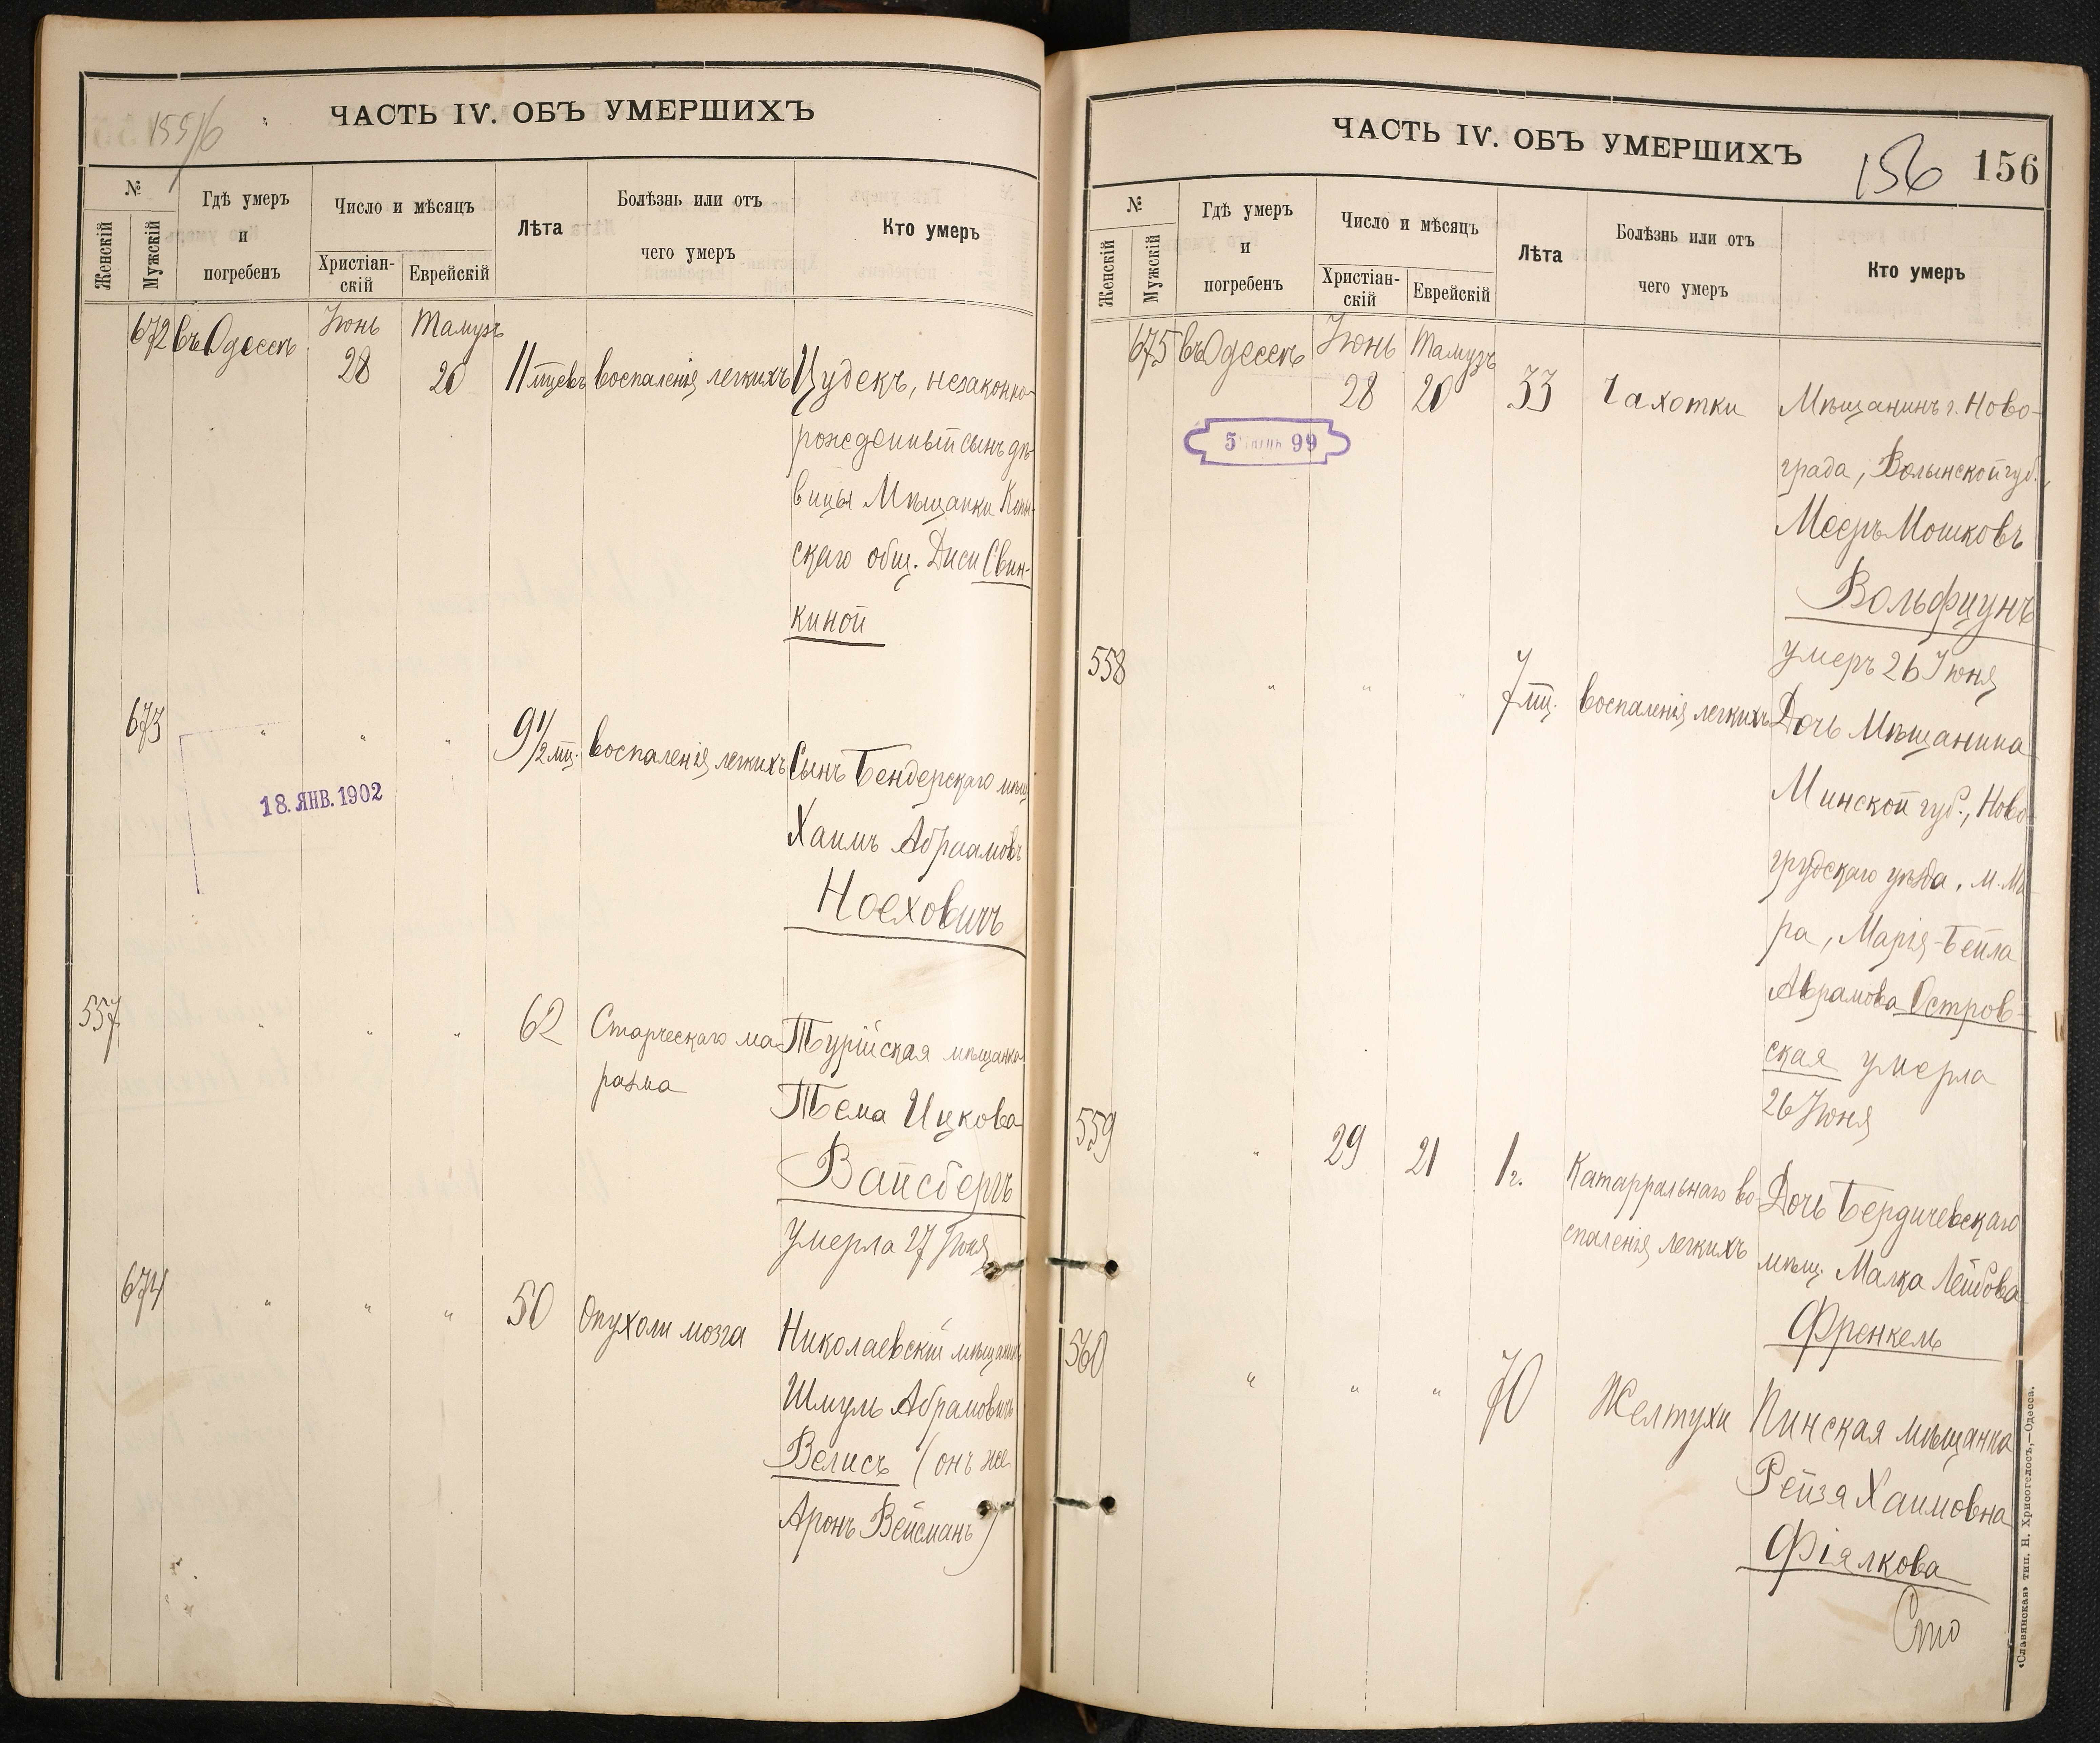 155/6
ЧАСТЬ IV. ОБЪ УМЕРШИХЪ
№
Женскій
Мужскій
Гдѣ умеръ
и
погребенъ
Число и мѣсяцъ
Христіан-
скій
Еврейскій
Лѣта
Болѣзнь или отъ
чего умеръ
Кто умеръ
672 въ Одессѣ
Іюнь
28
Тамузъ
20
11 мцевъ
воспаленія легкихъ
Цудекъ, незаконно-
рожденный сынъ дѣ-
вицы Мѣщанки Копы-
скаго общ. Диси Свин-
киной
673 " " "
9 1/2 мц.
воспаленія легкихъ
Сынъ Бендерскаго мѣщ.
Хаимъ Абрамовъ
Ноеховичъ
18. ЯНВ. 1902
557 " " "
62
Старческаго ма-
разма
Турійская мѣщанка
Тема Ицкова
Вайсбергъ
умерла 27 Іюня
674 " " "
50
Опухоли мозга
Николаевскій мѣщанинъ
Шмуль Абрамовичъ
Велисъ (онъ же
Аронъ Вейсманъ)
ЧАСТЬ IV. ОБЪ УМЕРШИХЪ
156 156
№
Женскій
Мужскій
Гдѣ умеръ
и
погребенъ
Число и мѣсяцъ
Христіан-
скій
Еврейскій
Лѣта
Болѣзнь или отъ
чего умеръ
Кто умеръ
675 въ Одессѣ
Іюнь
28
Тамузъ
20
33
Чахотки
Мѣщанинъ г. Ново-
града, Волынской губ.,
Мееръ Мошковъ
Вольфцунъ
умеръ 26 Іюня
5 99
558 " " "
7 мц.
воспаленія легкихъ
Дочь Мѣщанина
Минской губ., Ново-
грудскаго уѣзда, м. Ми-
ра, Марія-Бейла
Абрамова Остров-
ская умерла
26 Іюня
559 "
29
21
1 г.
Катарральнаго во-
спаленія легкихъ
Дочь Бердичевскаго
мѣщ. Малка Лейбова
Френкель
560 " " "
70
Желтухи
Пинская мѣщанка
Рейзя Хаимовна
Фіялкова
Сто
«Славянская» тип. Н. Хрисогелосъ,—Одесса.